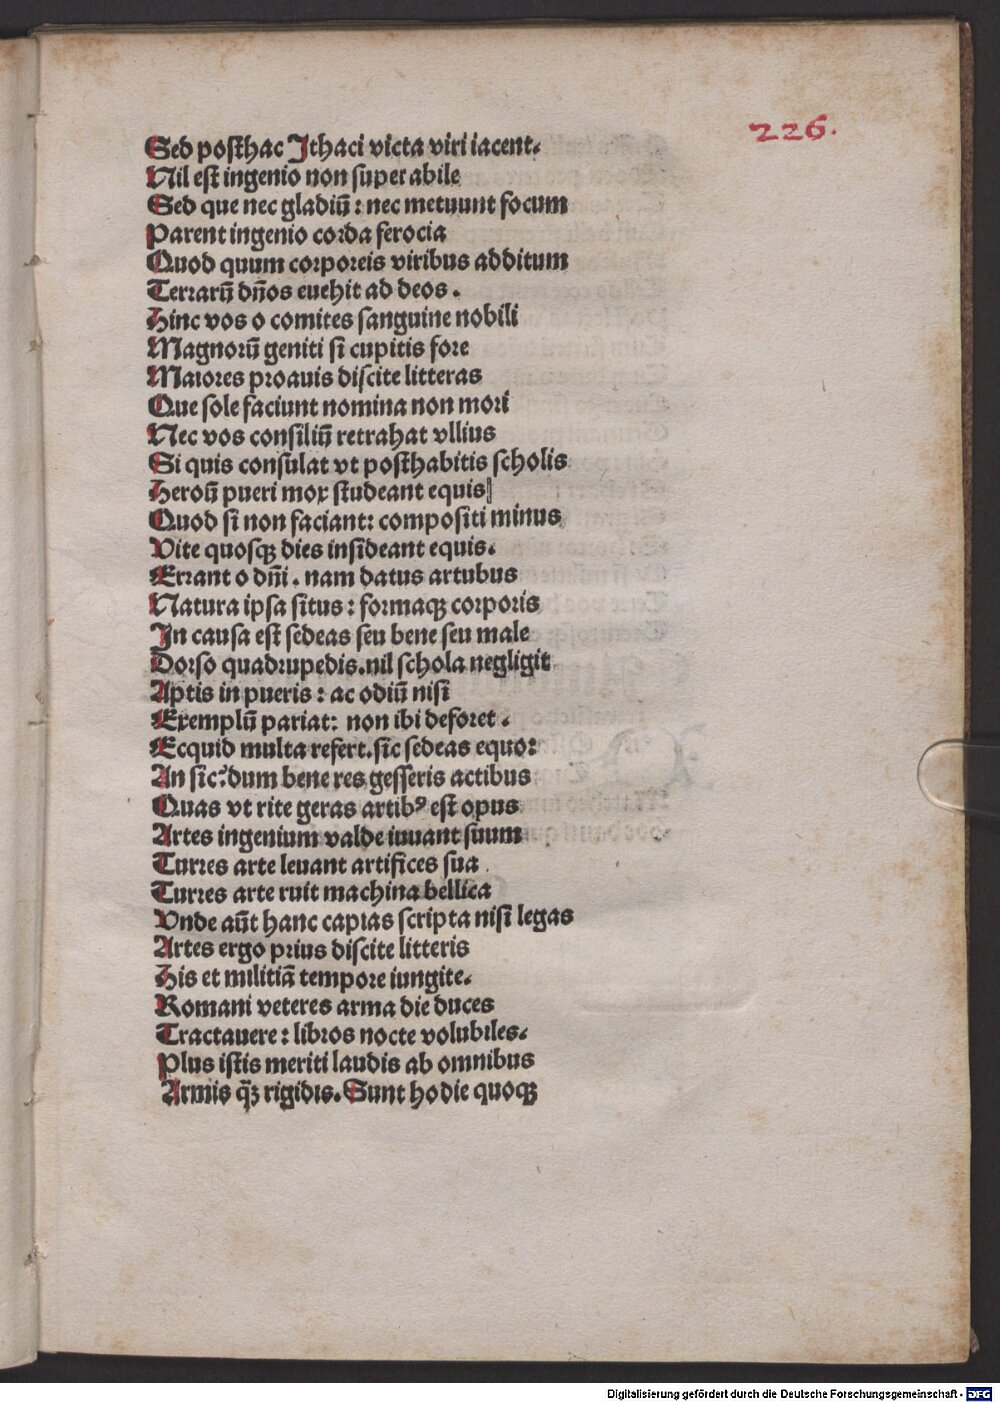 226.
Sed posthac Ithaci victa viri iacent.
Nil est ingenio non super abile
Sed que nec gladiū : nec metuunt focum
Parent ingenio corda ferocia
Quod quum corporeis viribus additum
Terrarū dn̄os euehit ad deos.
Hinc vos o comites sanguine nobili
Magnorū geniti si cupitis fore
Maiores proauis discite litteras
Que sole faciunt nomina non mori
Nec vos consiliū retrahat vllius
Si quis consulat vt posthabitis scholis
Heroū pueri mox studeant equis
Quod si non faciant: compositi minus
Vite quosqꝫ dies insideant equis.
Errant o dn̄i. nam datus artubus
Natura ipsa situs : formaqꝫ corporis
In causa est sedeas seu bene seu male
Dorso quadrupedis. nil schola negligit
Aptis in pueris : ac odiū nisi
Exemplū pariat: non ibi deforet.
Ecquid multa refert. sic sedeas equo:
An sic? dum bene res gesseris actibus
Quas vt rite geras artibꝰ est opus
Artes ingenium valde iuuant suum
Turres arte leuant artifices sua.
Turres arte ruit machina bellica
Vnde aūt hanc capias scripta nisi legas
Artes ergo prius discite litteris
His et militiā tempore iungite.
Romani veteres arma die duces
Tractauere : libros nocte volubiles.
Plus istis meriti laudis ab omnibus
Armis q̄ꝫ rigidis. Sunt hodie quoqꝫ
Digitalisierung gefördert durch die Deutsche Forschungsgemeinschaft - DFG